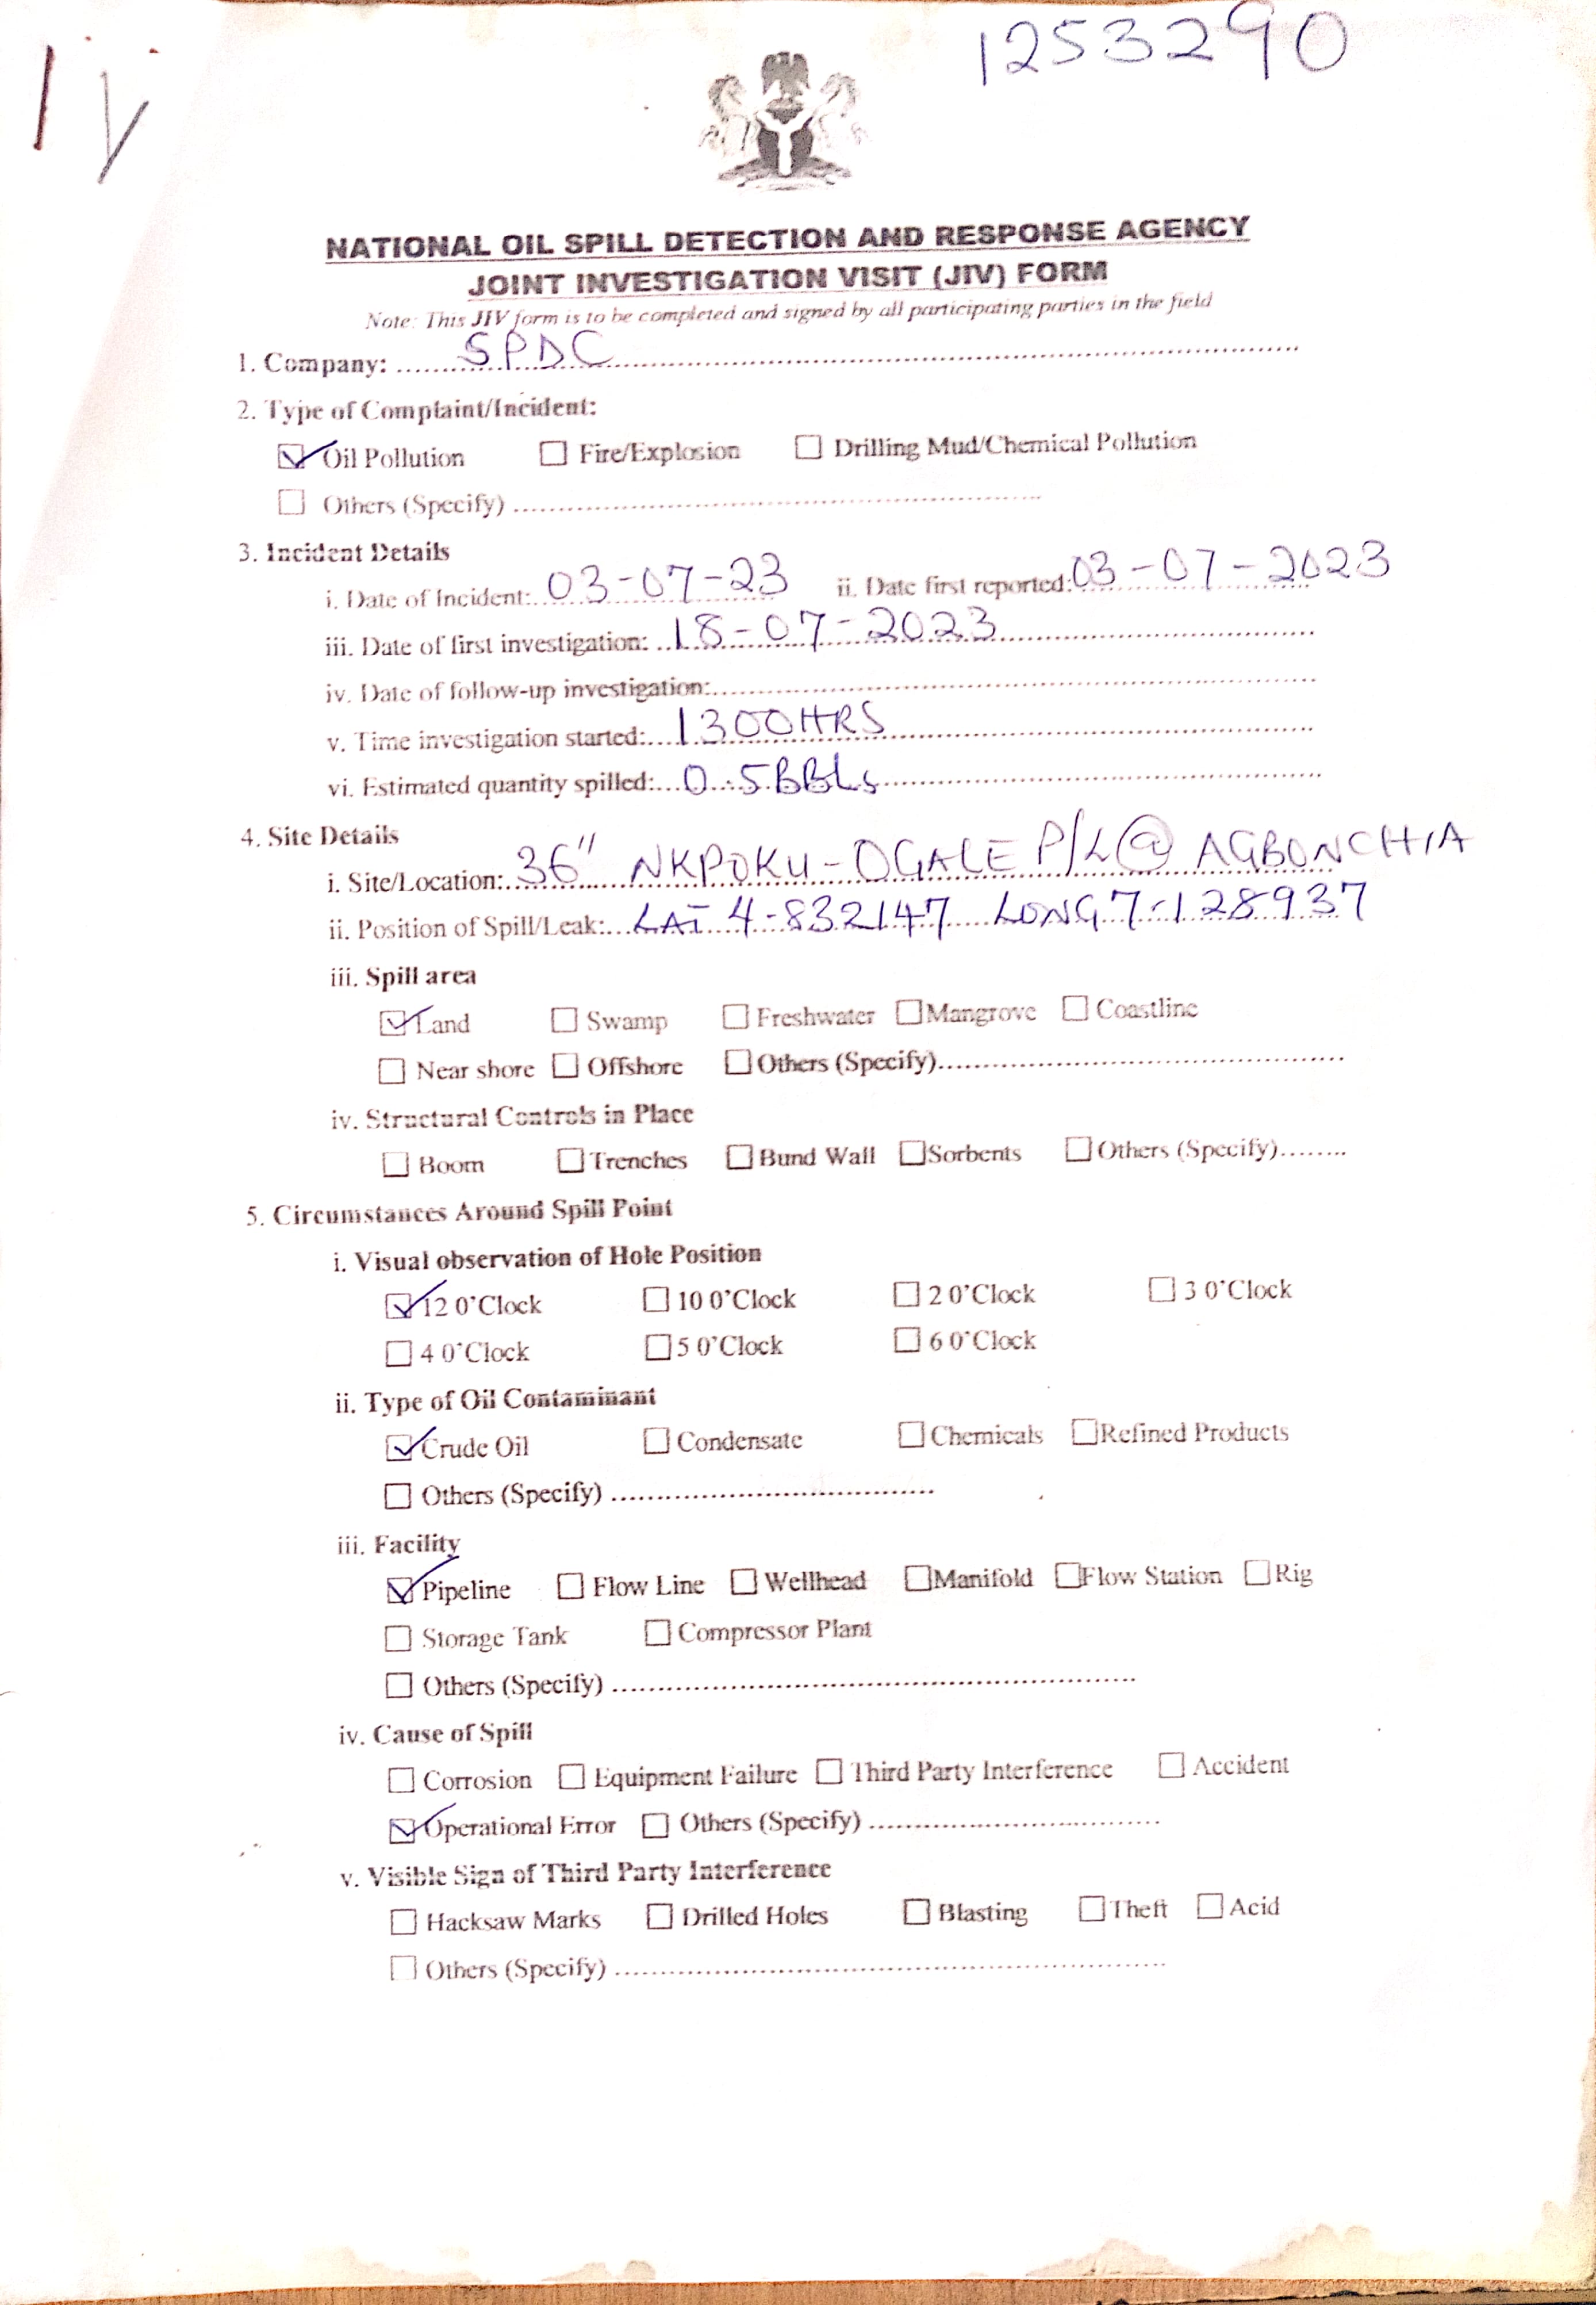 1253290
NATIONAL OIL SPILL DETECTION AND RESPONSE AGENCY
JOINT INVESTIGATION VISIT (JIV) FORM
Note: This JIV form is to be completed and signed by all participating parties in the field
1. Company: SPDC
2. Type of Complaint/Incident:
☑ Oil Pollution ☐ Fire/Explosion ☐ Drilling Mud/Chemical Pollution
☐ Others (Specify)
3. Incident Details
i. Date of Incident: 03-07-23 ii. Date first reported: 03-07-2023
iii. Date of first investigation: 18-07-2023
iv. Date of follow-up investigation:
v. Time investigation started: 1300HRS
vi. Estimated quantity spilled: 0.5BBLs
4. Site Details
i. Site/Location: 36" NKPOKU-OGALE P/L @ AGBONCHIA
ii. Position of Spill/Leak: LAT 4.832147 LONG.7.128937
iii. Spill area
☑ Land ☐ Swamp ☐ Freshwater ☐ Mangrove ☐ Coastline
☐ Near shore ☐ Offshore ☐ Others (Specify)
iv. Structural Controls in Place
☐ Boom ☐ Trenches ☐ Bund Wall ☐ Sorbents ☐ Others (Specify)
5. Circumstances Around Spill Point
i. Visual observation of Hole Position
☑ 12 0'Clock ☐ 10 0'Clock ☐ 2 0'Clock ☐ 3 0'Clock
☐ 4 0'Clock ☐ 5 0'Clock ☐ 6 0'Clock
ii. Type of Oil Contaminant
☑ Crude Oil ☐ Condensate ☐ Chemicals ☐ Refined Products
☐ Others (Specify)
iii. Facility
☑ Pipeline ☐ Flow Line ☐ Wellhead ☐ Manifold ☐ Flow Station ☐ Rig
☐ Storage Tank ☐ Compressor Plant
☐ Others (Specify)
iv. Cause of Spill
☐ Corrosion ☐ Equipment Failure ☐ Third Party Interference ☐ Accident
☑ Operational Error ☐ Others (Specify)
v. Visible Sign of Third Party Interference
☐ Hacksaw Marks ☐ Drilled Holes ☐ Blasting ☐ Theft ☐ Acid
☐ Others (Specify)